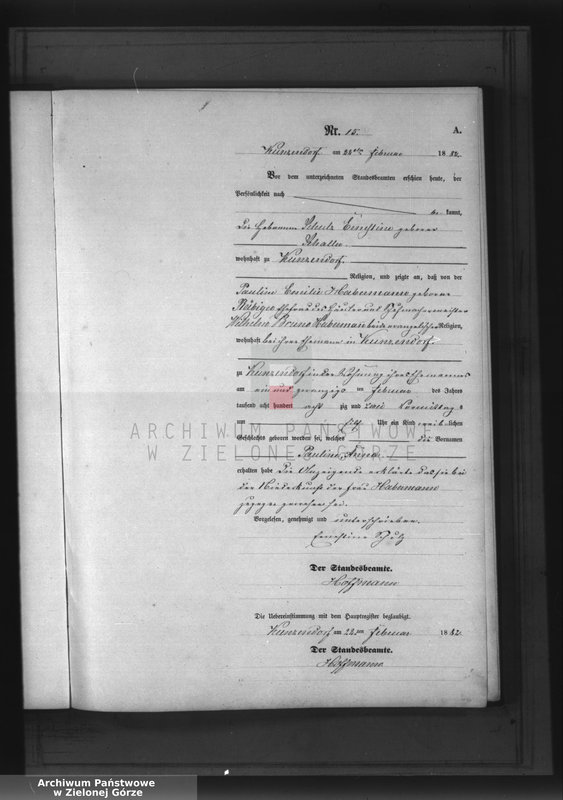 Nr. 15. A.
Kunzendorf am 22ten Februar 1882.
Vor dem unterzeichneten Standesbeamten erschien heute, der
Persönlichkeit nach
be kannt,
die Hebamme Schulz Ernestine geborene
wohnhaft zu Kunzendorf.
Religion, und zeigte an, daß von der
Pauline Emilie Habermann geborene
Ehefrau des Häusler und
Wilhelm Bruno Habermann beide evangelischer Religion,
wohnhaft bei ihrem Ehemann in Kunzendorf.
zu Kunzendorf in der Wohnung ihres Ehemannes
am ein und zwanzigsten Februar des Jahres
tausend acht hundert acht zig und zwei Vormittag s
um Uhr ein Kind weib lichen
Geschlechts geboren worden sei, welches die Vornamen
Pauline, Anna
erhalten habe. Die Anzeigende erklärte daß sie bei
der Niederkunft der Frau Habermann
zugegen gewesen sei.
Vorgelesen, genehmigt und unterschrieben.
Ernestine Schulz
Der Standesbeamte.
Hoffmann
Die Uebereinstimmung mit dem Hauptregister beglaubigt.
Kunzendorf am 22ten Februar 1882.
Der Standesbeamte.
Hoffmann
ARCHIWUM PAŃSTWOWE
W ZIELONEJ GÓRZE
Archiwum Państwowe
w Zielonej Górze